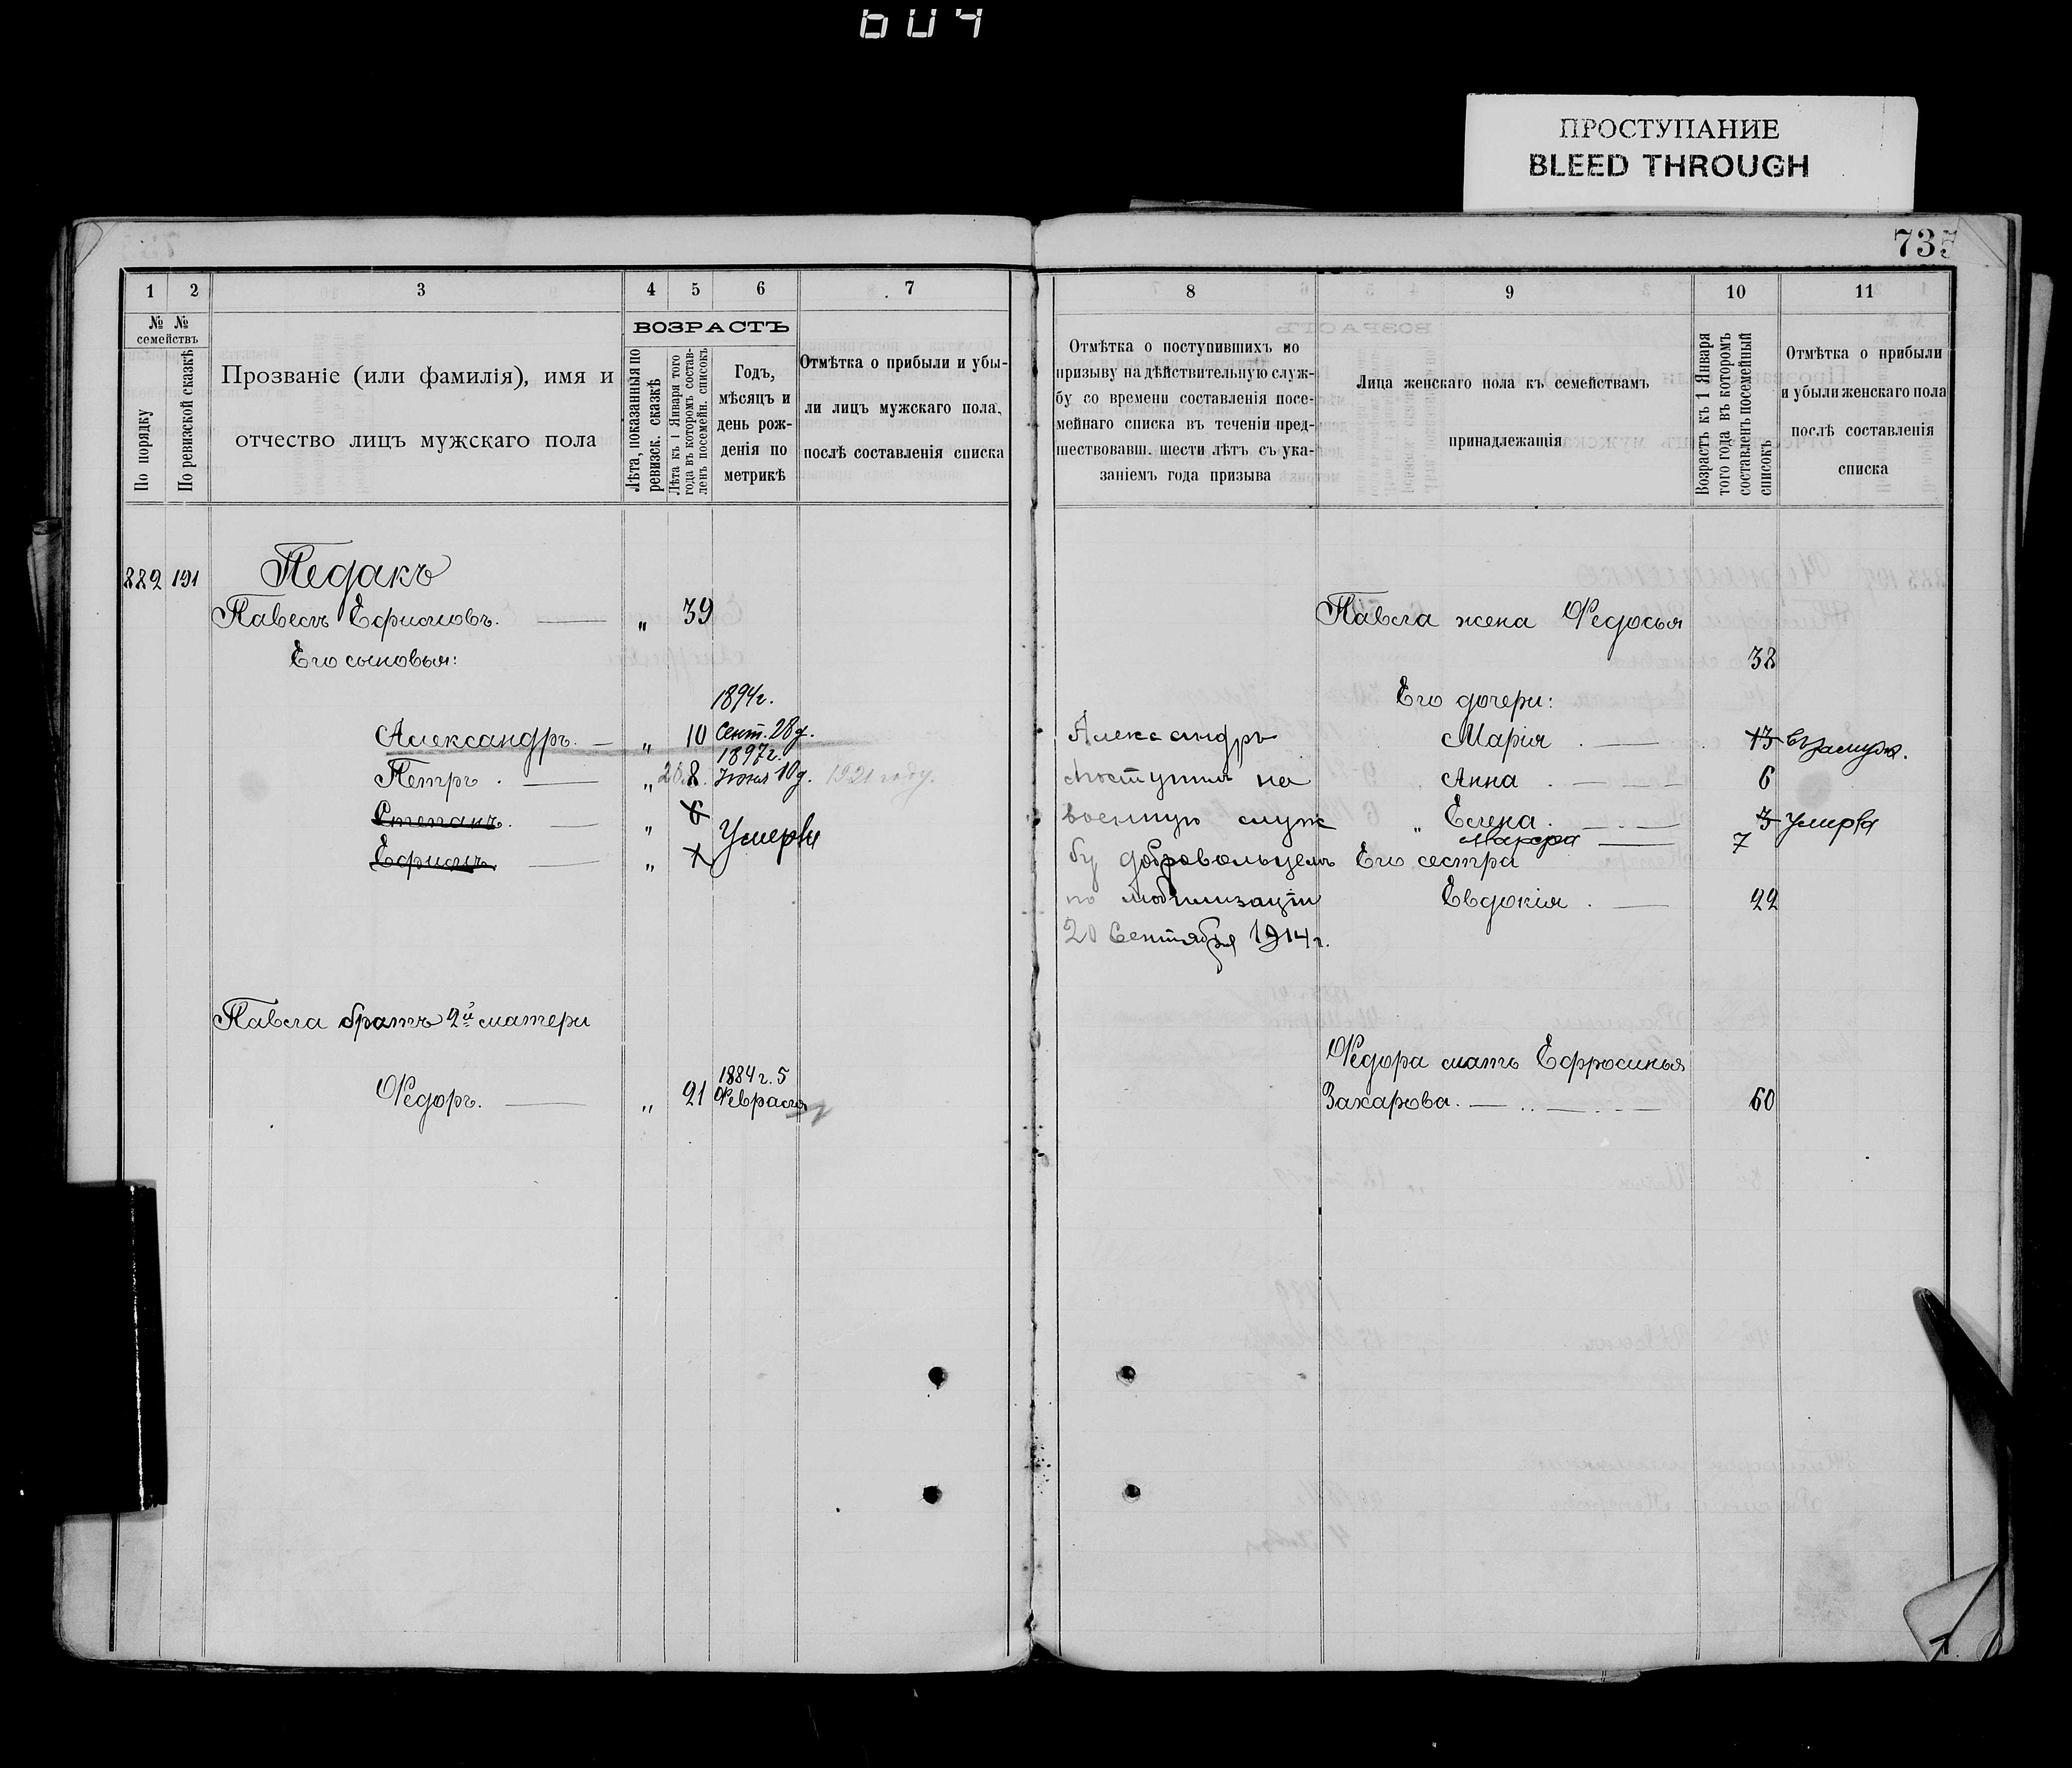 604
ПРОСТУПАНИЕ
BLEED THROUGH
735
1 2 3 4 5 6 7
№ № семействъ
По порядку
По ревизской сказкѣ
Прозваніе (или фамилія), имя и
отчество лицъ мужскаго пола
ВОЗРАСТЪ
Лѣта, показанныя по
ревизск. сказкѣ
Лѣта къ 1 Января того
года въ которомъ состав-
ленъ посемейн. списокъ
Годъ,
мѣсяцъ и
день рож-
денія по
метрикѣ
Отмѣтка о прибыли и убы-
ли лицъ мужскаго пола,
послѣ составленія списка
889 191 Педакъ
Павелъ Ефимовъ. „ 39
Его сыновья:
1894 г.
Александръ. „ 10 Сент. 28 д.
1897 г.
Петръ. „ 20 8. Іюня 10 д. 1921 году.
Степанъ. „ 6
Умерли
Ефимъ. „
Павла братъ 2й матери
1884 г. 5
Федоръ. „ 21 Февраля
8 9 10 11
Отмѣтка о поступившихъ по
призыву на дѣйствительную служ-
бу со времени составленія посе-
мейнаго списка въ теченіи пред-
шествовавш. шести лѣтъ съ ука-
заніемъ года призыва
Лица женскаго пола къ семействамъ
принадлежащія
Возрастъ къ 1 Января
того года въ которомъ
составленъ посемейный
списокъ
Отмѣтка о прибыли
и убыли женскаго пола
послѣ составленія
списка
Павла жена Федосья
38
Его дочери:
Александръ
поступил на
военную служ
бу добровольцемъ
по мобилизаціи
20 Сентября 1914 г.
Марія. 13 взамуж.
Анна. 6
„ Елена. 3 умерла
Макора 7
Его сестра
Евдокія. 22
Федора мать Ефросинья
Захарова. 60